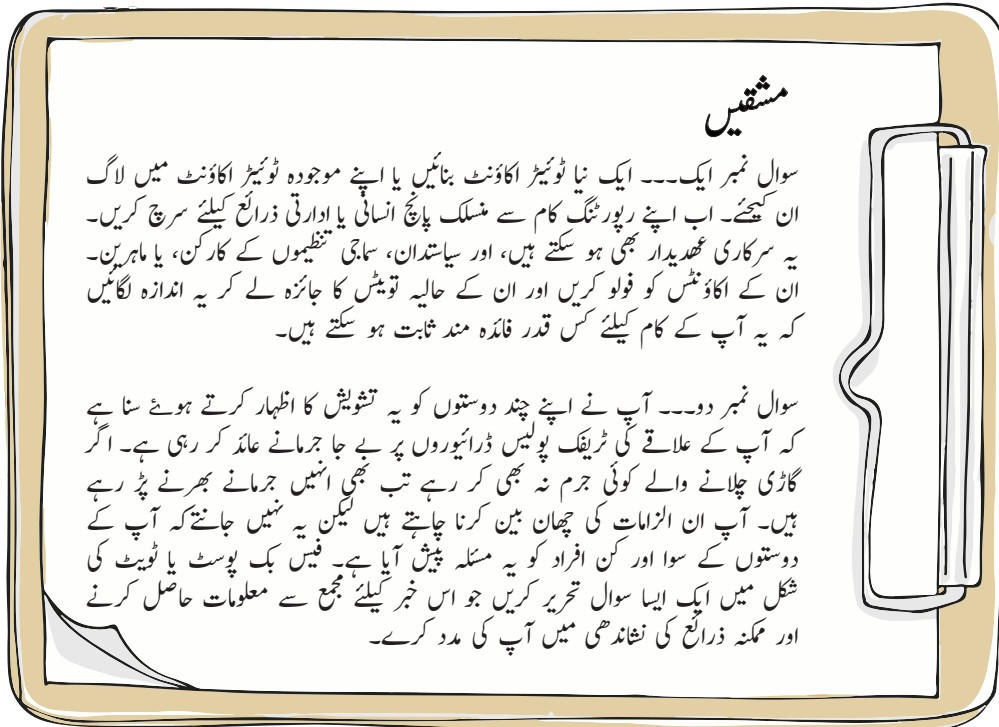 مشقیں
سوال نمبر ایک۔۔۔ ایک نیا ٹوئیڑ اکاؤنٹ بنائیں یا اپنے موجودہ ٹوئیڑ اکاؤنٹ میں لاگ
ان کیجئے۔ اب اپنے رپورٹنگ کام سے منسلک پانچ انسانی یا ادارتی ذرائع کیلئے سرچ کریں۔
یہ سرکاری عھدیدار بھی ہو سکتے ہیں، اور سیاستدان، سماجی تنظیموں کے کارکن، یا ماہرین۔
ان کے اکاؤنٹس کو فولو کریں اور ان کے حالیہ توئیٹس کا جائزہ لے کر یہ اندازہ لگائیں
کہ یہ آپ کے کام کیلئے کس قدر فائدہ مند ثابت ہو سکتے ہیں۔
سوال نمبر دو۔۔۔ آپ نے اپنے چند دوستوں کو یہ تشویش کا اظہار کرتے ہوئے سنا ہے
کہ آپ کے علاقے کی ٹریفک پولیس ڈرائیوروں پر بے جا جرمانے عائد کر رہی ہے۔ اگر
گاڑی چلانے والے کوئی جرم نہ بھی کر رہے تب بھی انہیں جرمانے بھرنے پڑ رہے
ہیں۔ آپ ان الزامات کی چھان بین کرنا چاہتے ہیں لیکن یہ نہیں جانتے کہ آپ کے
دوستوں کے سوا اور کن افراد کو یہ مسئلہ پیش آیا ہے۔ فیس بک پوسٹ یا ٹویٹ کی
شکل میں ایک ایسا سوال تحریر کریں جو اس خبر کیلئے مجمع سے معلومات حاصل کرنے
اور ممکنہ ذرائع کی نشاندھی میں آپ کی مدد کرے۔